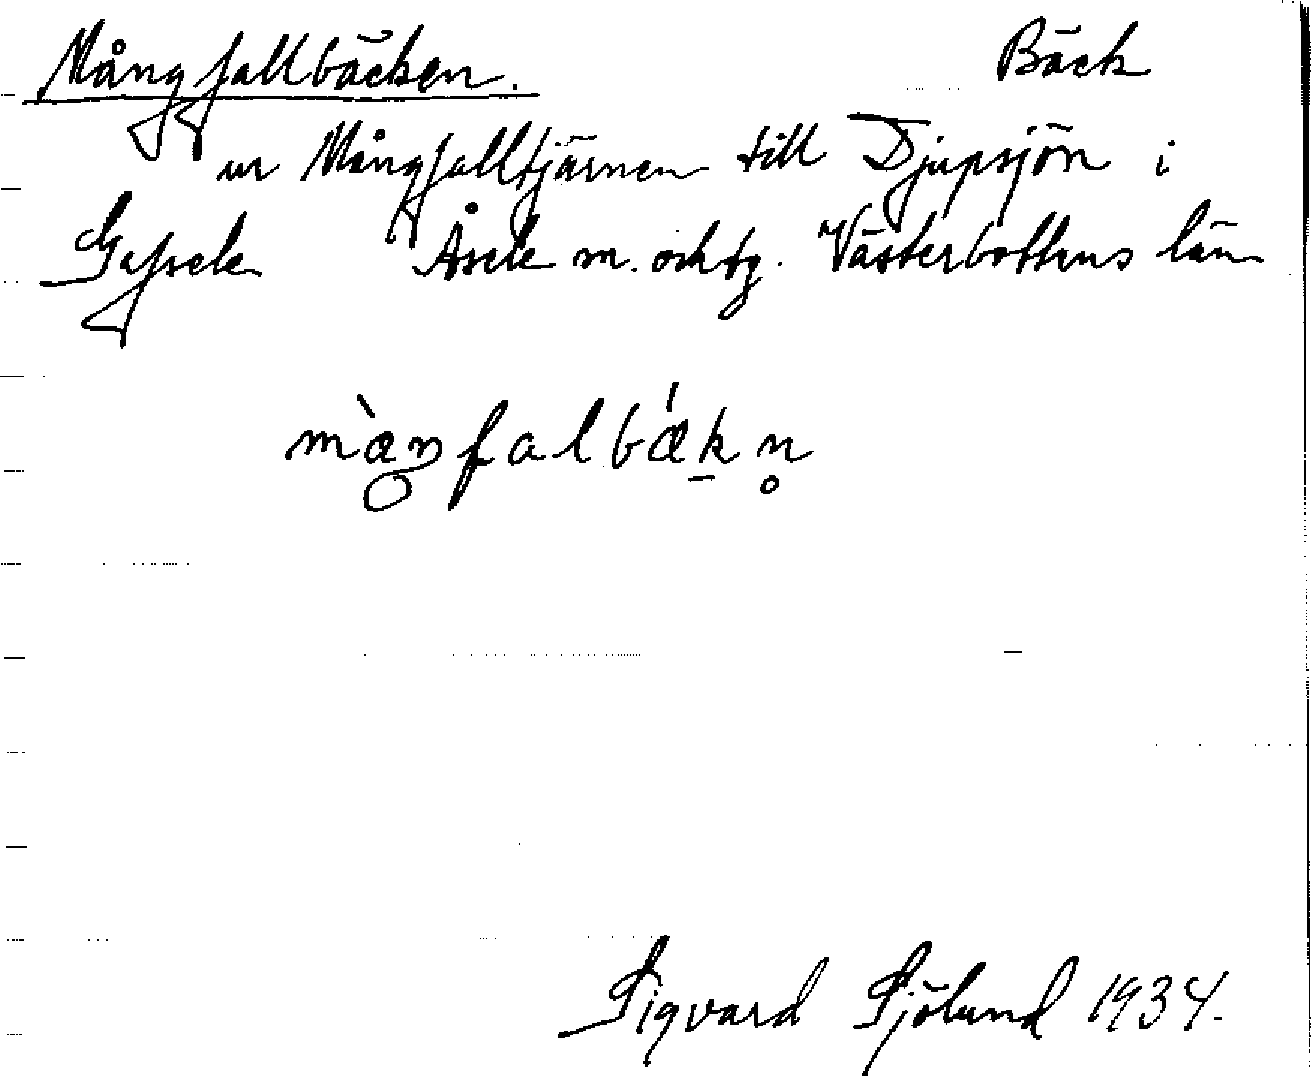 Mångfallbäcken. Bäck
ur Mångfalltjärnen till Djupsjön i
Gafsele Åsele m. och tg. Västerbottens län
màŋfalbǽkn̥
Sigvard Sjölund 1934.